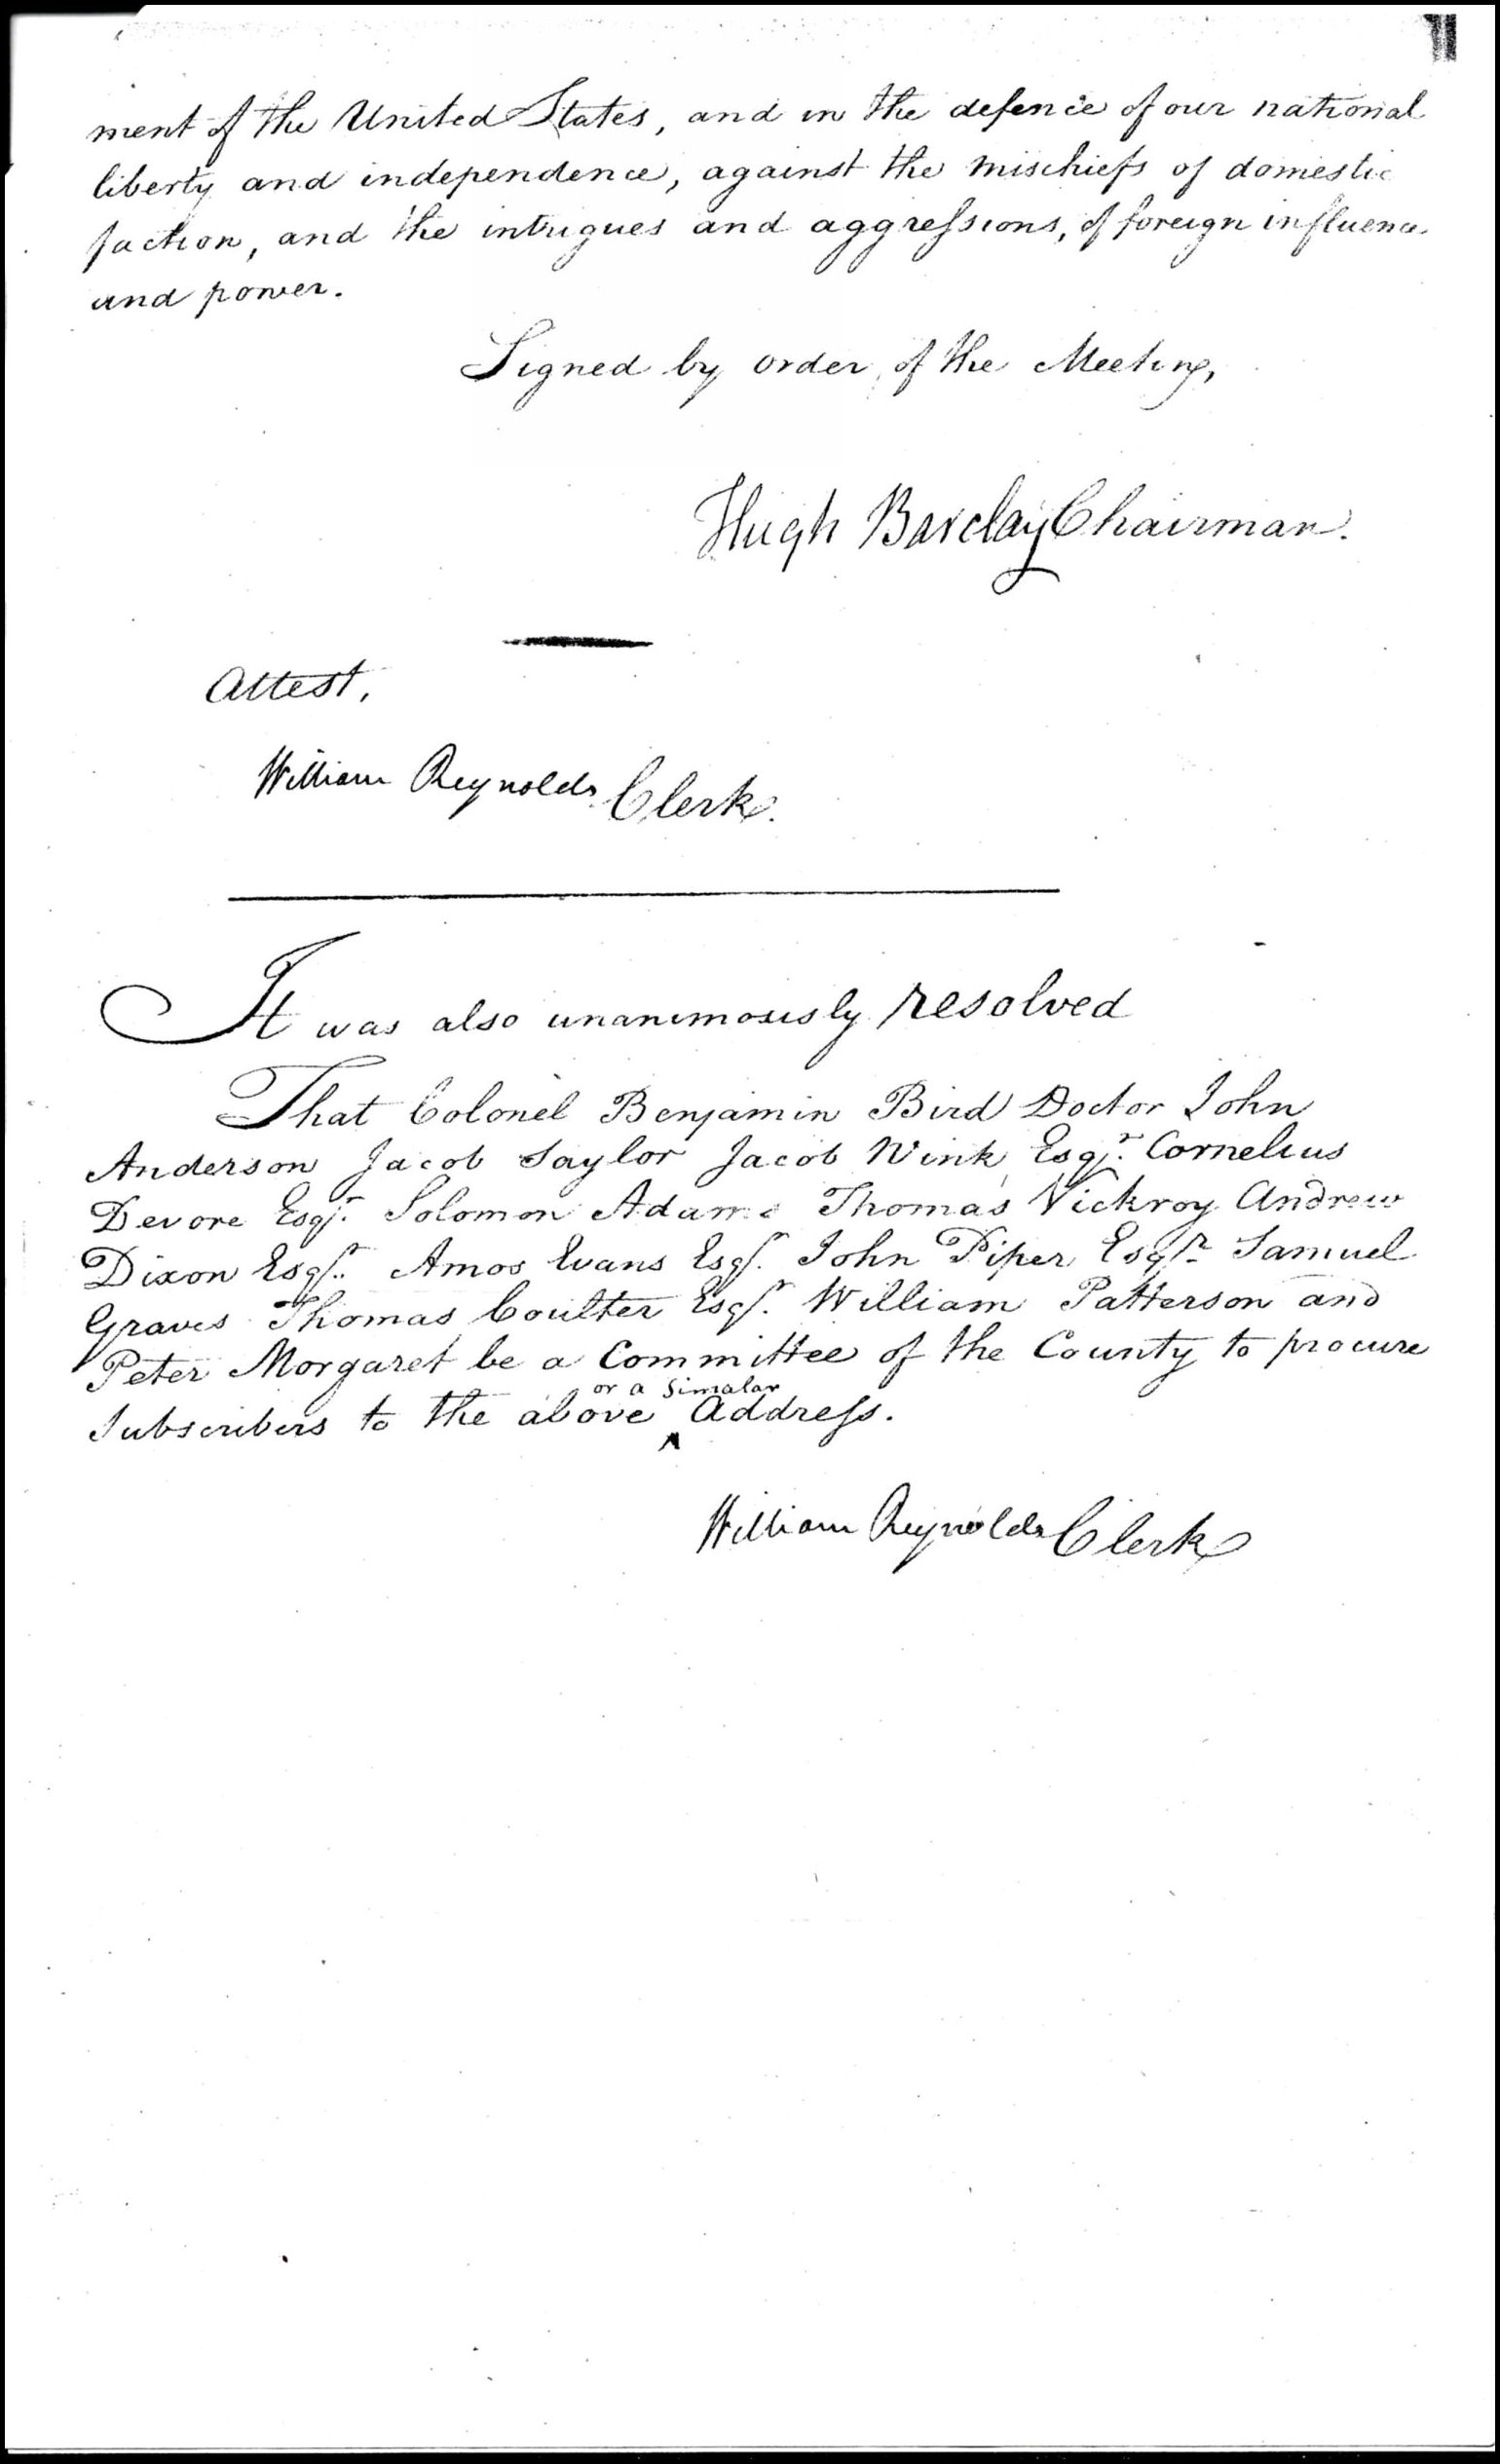 ment of the United States, and in the defence of our national
liberty and independence, against the mischiefs of domestic
faction, and the intrigues and aggressions, of foreign influence
and power.
Signed by order of the Meeting,
Hugh Barclay Chairman.
Attest,
William Reynolds Clerk.
It was also unanimously resolved
That Colonel Benjamin Bird Doctor John
Anderson Jacob Saylor Jacob Wink Esqr. Cornelius
Devore Esqr. Solomon Adams Thomas Vickroy Andrew
Dixon Esqr. Amos Evans Esqr. John Piper Esqr. Samuel
Graves Thomas Coulter Esqr. William Patterson and
Peter Morgaret be a Committee of the County to procure
or a Simalar
Subscribers to the above ^ Address.
William Reynolds Clerk